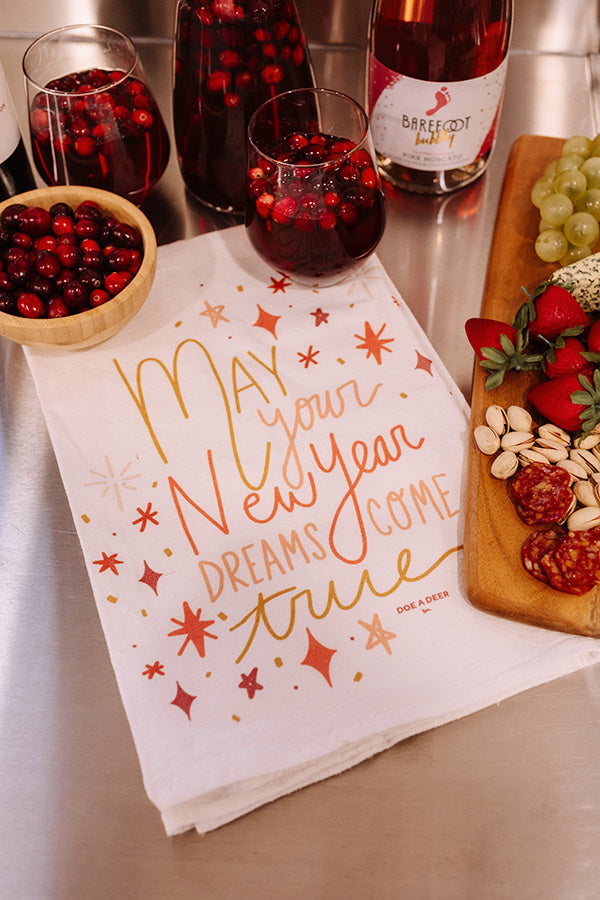 BAREFOOT
bubbly
PINK MOSCATO
MAY
your
New Year
DREAMS COME
true
DOE A DEER